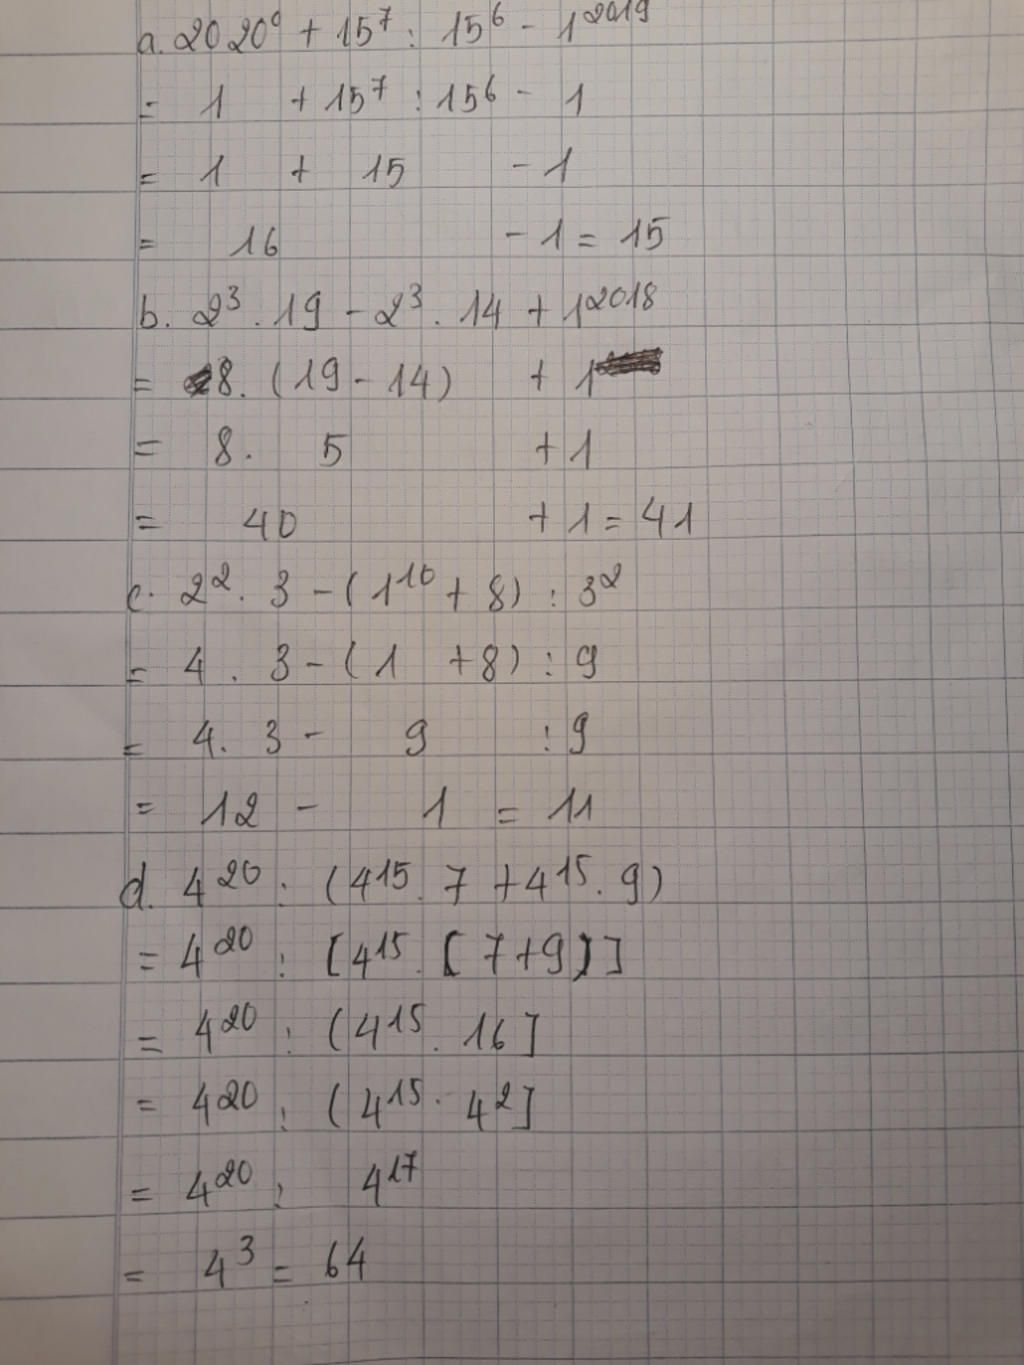 a. 2020⁰ + 15⁷ : 15⁶ - 1²⁰¹⁹
= 1 + 15⁷ : 15⁶ - 1
= 1 + 15 - 1
= 16 - 1 = 15
b. 2³ . 19 - 2³ . 14 + 1²⁰¹⁸
= 8. (19 - 14) + 1
= 8. 5 + 1
= 40 + 1 = 41
c. 2². 3 - (1¹⁰ + 8) : 3²
= 4 . 3 - (1 + 8) : 9
= 4. 3 - 9 : 9
= 12 - 1 = 11
d. 4²⁰ : (4¹⁵. 7 + 4¹⁵. 9)
= 4²⁰ : [4¹⁵. [7+9)]
= 4²⁰ : (4¹⁵. 16]
= 4²⁰ : (4¹⁵. 4²]
= 4²⁰ : 4¹⁷
= 4³ = 64